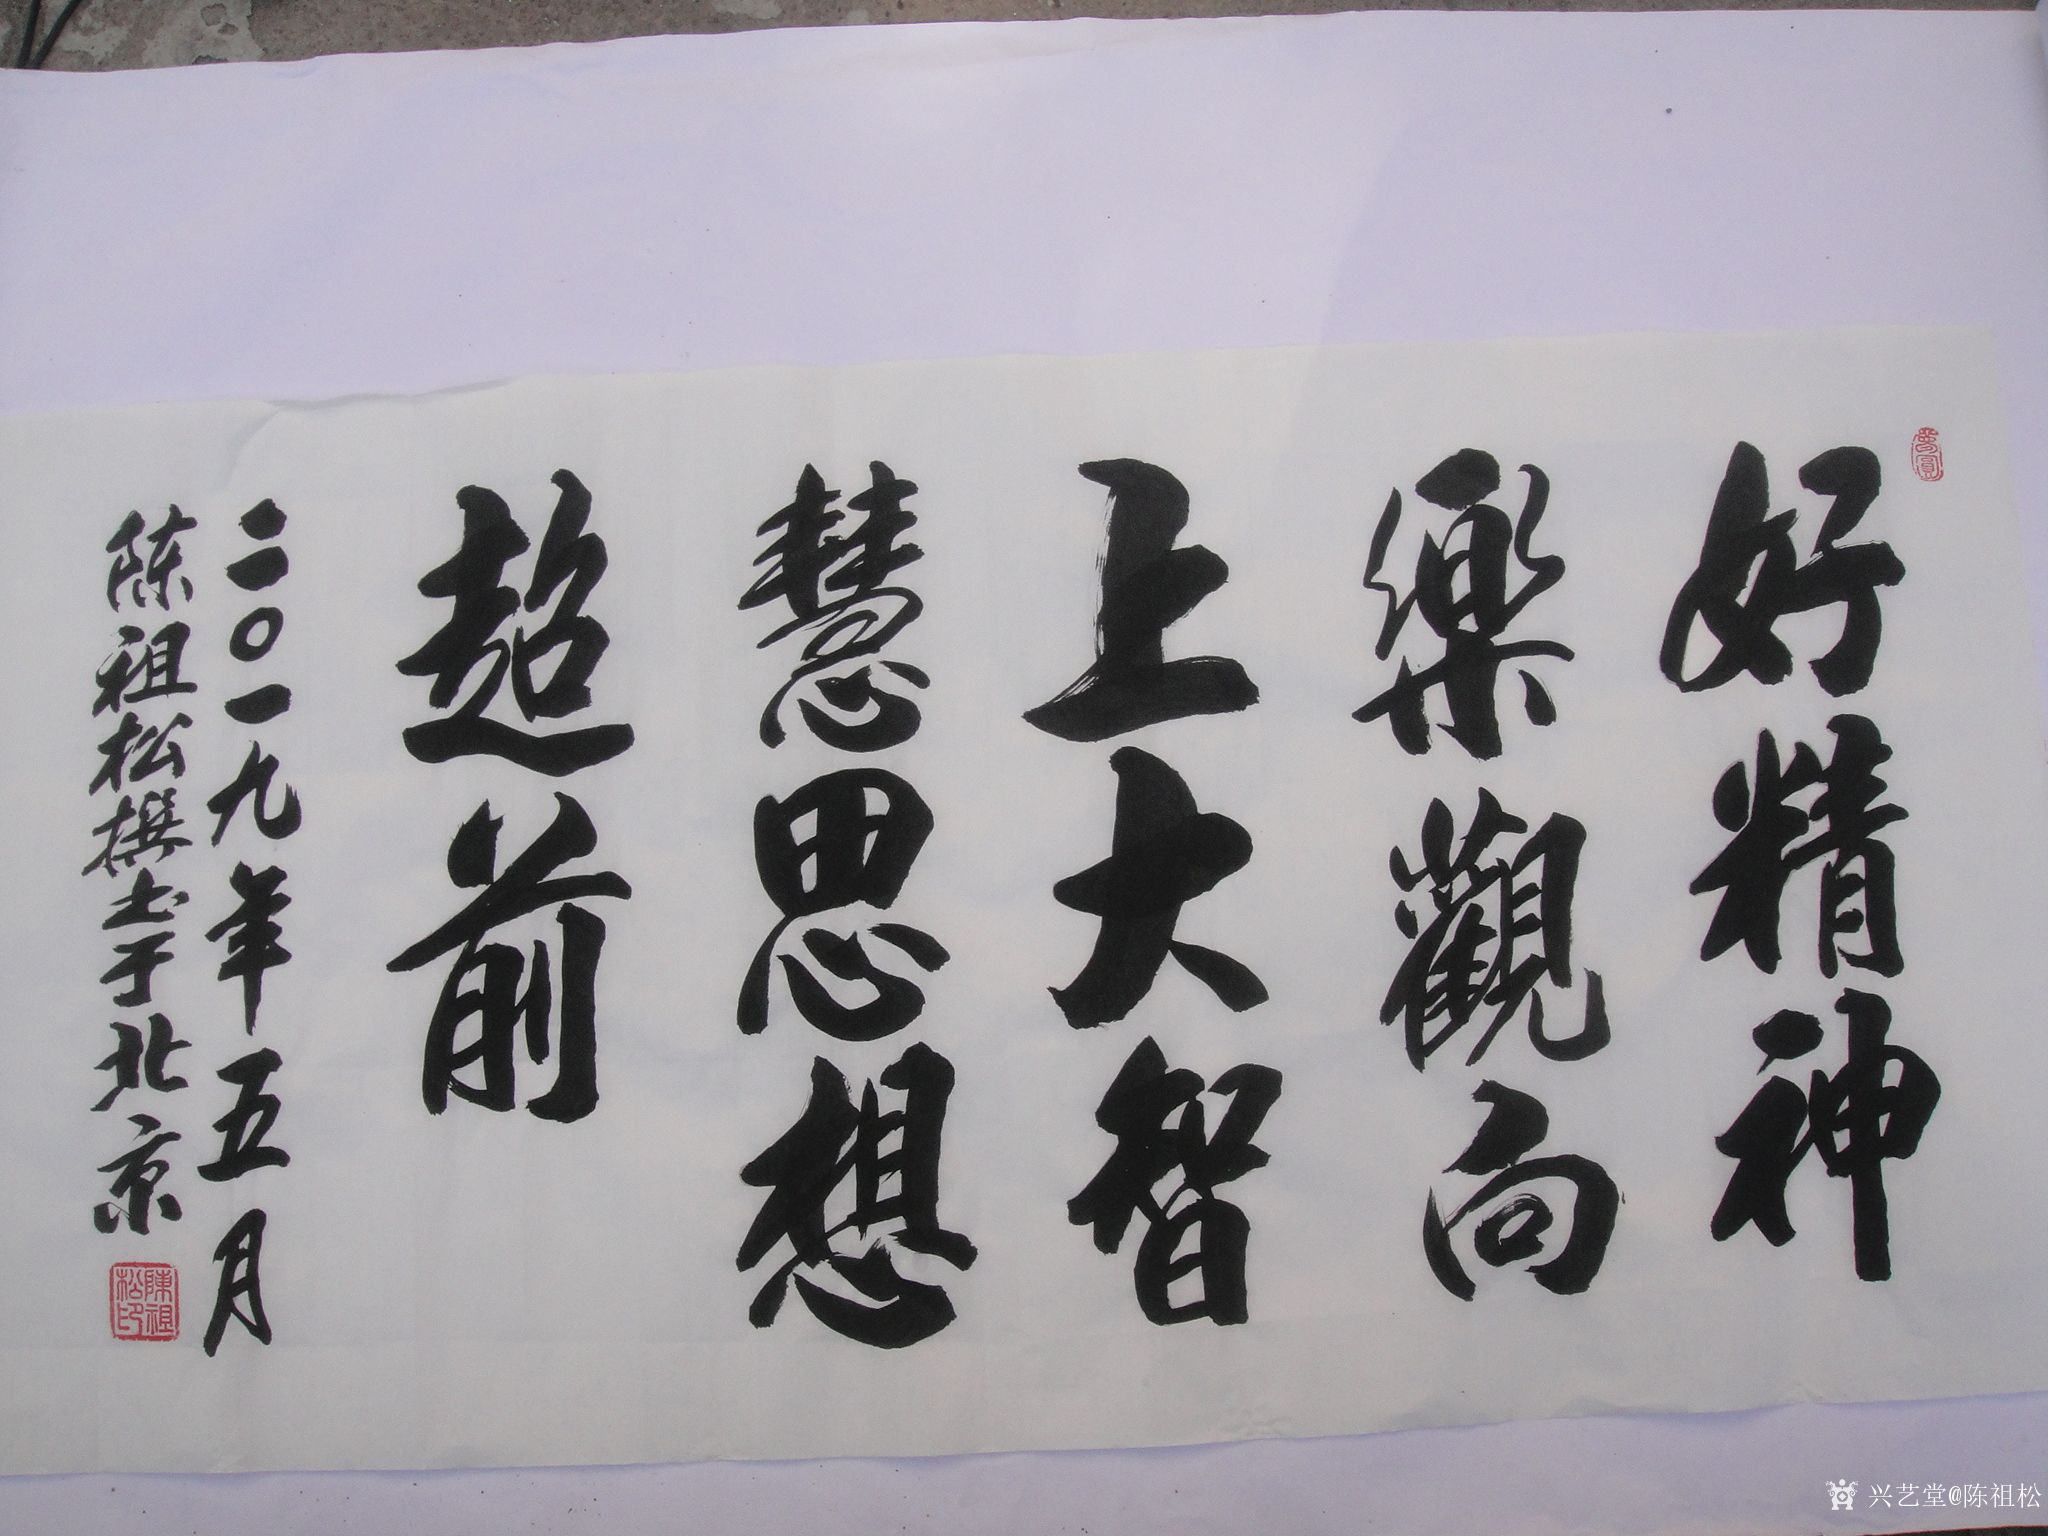 好精神
樂觀向
上大智
慧思想
超前
二〇一九年五月
陈祖松撰书于北京
陳祖松印
兴艺堂@陈祖松